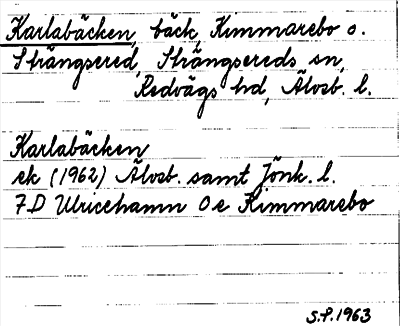 Karlabäcken, bäck, Kimmarebo o.
Strängsered, Strängsereds sn,
Redvägs hd, Älvsb. l.
Karlabäcken
ek (1962) Älvsb. samt Jönk. l.
7D Ulricehamn 0e Kimmarebo
S.P. 1963